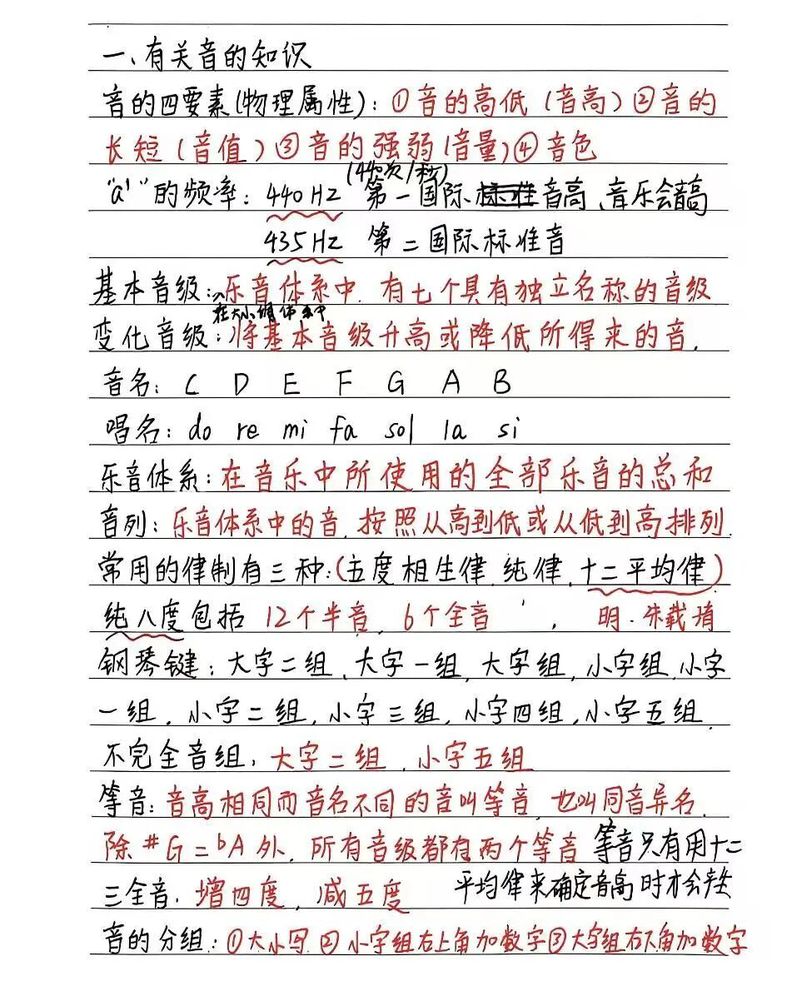 一、有关音的知识
音的四要素(物理属性)：①音的高低（音高）②音的
长短（音值）③音的强弱(音量)④音色
(440次/秒)
"a¹"的频率：440HZ 第一国际标准音高、音乐会音高
435HZ 第二国际标准音
基本音级：乐音体系中，有七个具有独立名称的音级
在大小调体系中
变化音级：将基本音级升高或降低所得来的音.
音名：C D E F G A B
唱名：do re mi fa sol la si
乐音体系：在音乐中所使用的全部乐音的总和
音列：乐音体系中的音，按照从高到低或从低到高排列
常用的律制有三种：(五度相生律，纯律，十二平均律）
纯八度包括 12个半音，6个全音 ，明·朱载堉
钢琴键：大字二组、大字一组，大字组，小字组，小字
一组，小字二组，小字三组，小字四组，小字五组
不完全音组：大字二组，小字五组
等音：音高相同而音名不同的音叫等音，也叫同音异名.
除#G=bA外，所有音级都有两个等音 等音只有用十二
三全音：增四度，减五度 平均律来确定音高时才会产生
音的分组：①大小写 ②小字组右上角加数字③大字组右下角加数字